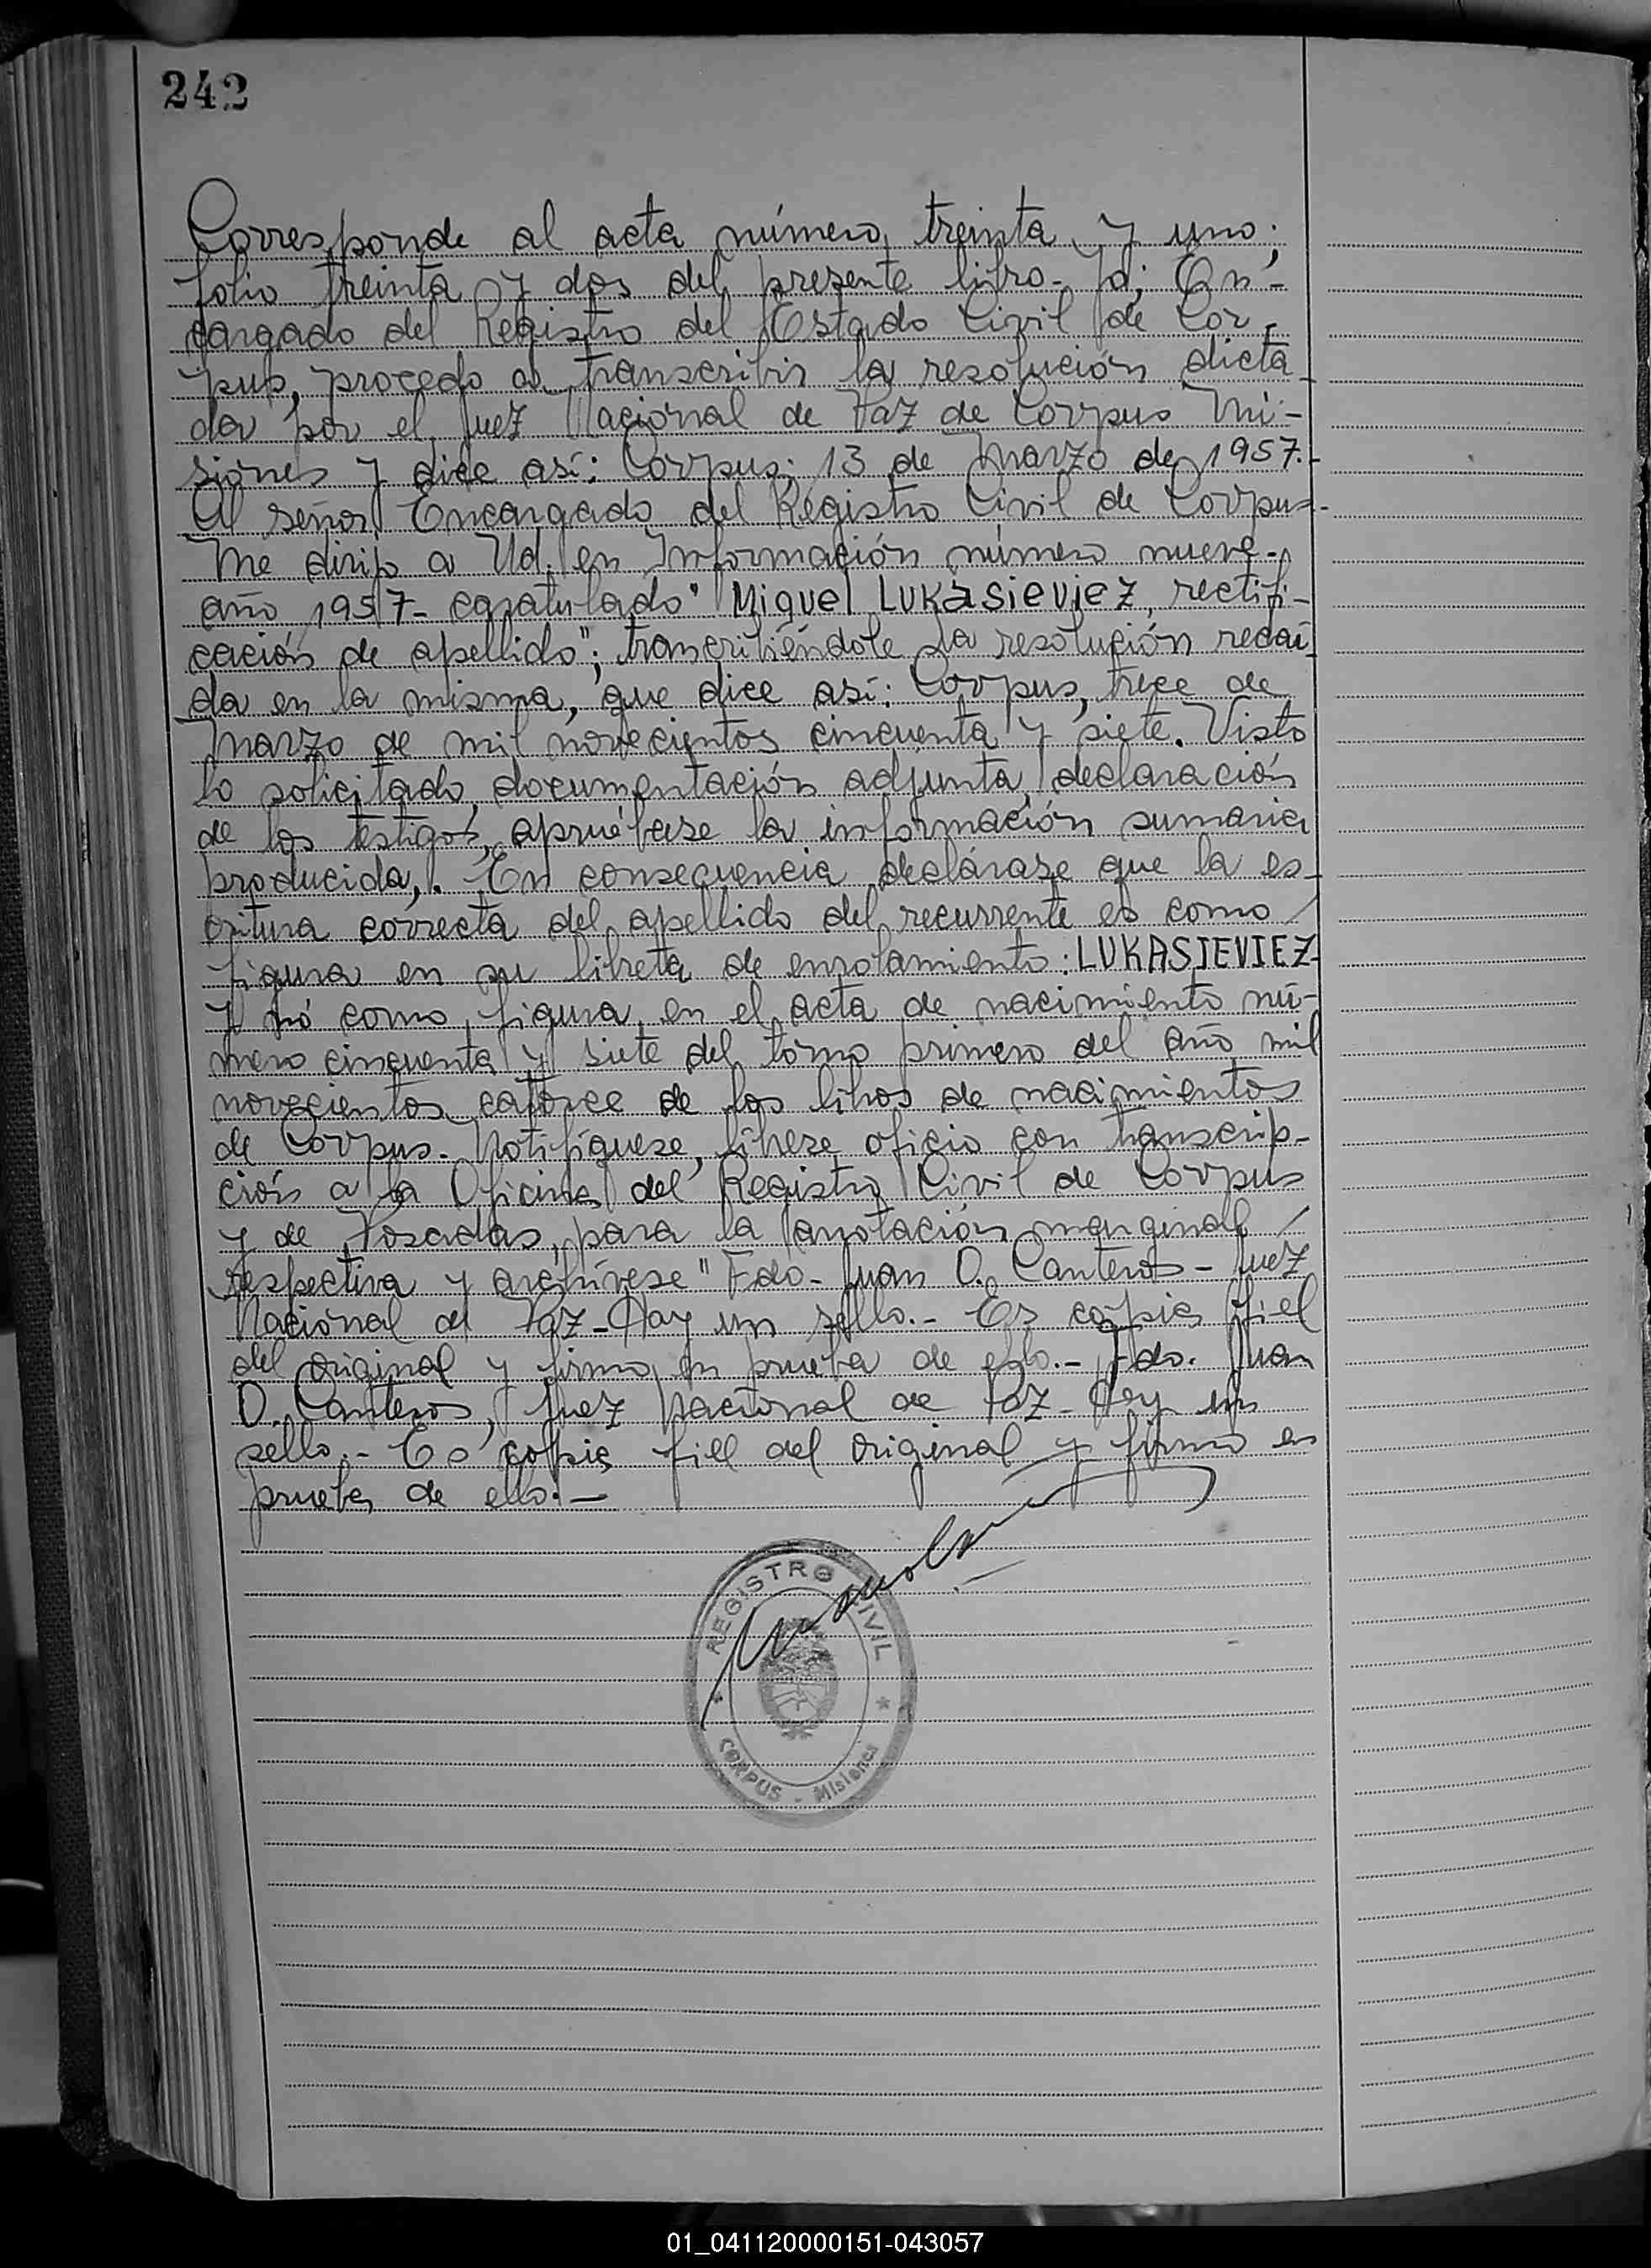 242
Corresponde al acta número treinta y uno;
folio treinta y dos del presente libro- Yo; En-
cargado del Registro del Estado Civil de Cor-
pus, procedo a transcribir la resolución dicta-
da por el Juez Nacional de Paz de Corpus Mi-
siones y dice así: Corpus; 13 de Marzo de 1957.-
Al señor Encargado del Registro Civil de Corpus-
Me dirijo a Ud. en Información número nueve-
año 1957- caratulado "Miguel LUKasievieZ, rectifi-
cación de apellido"; transcribiéndole la resolución recaí-
da en la misma, que dice así: Corpus, trece de
Marzo de mil novecientos cincuenta y siete. Visto
lo solicitado, documentación adjunta, declaración
de los testigos, apruébase la información sumaria
producida,. En consecuencia declárase que la es-
critura correcta del apellido del recurrente es como /
figura en su libreta de enrolamiento: LUKASIEVIEZ-
y nó como figura en el acta de nacimiento nú-
mero cincuenta y siete del tomo primero del año mil
novecientos catorce de los libros de nacimientos
de Corpus. Notifíquese, líbrese oficio con transcrip-
ción a la Oficina del Registro Civil de Corpus
y de Posadas, para la anotación marginal /
respectiva y archívese" Fdo- Juan D. Canteros - Juez
Nacional de Paz- Hay un sello.- Es copia fiel
del original y firmo en prueba de ello.- Fdo. Juan
D. Canteros, Juez Nacional de Paz- Hay un
sello.- Es copia fiel del original y firmo en
prueba de ello.-
REGISTRO CIVIL
CORPUS - Misiones
01_041120000151-043057